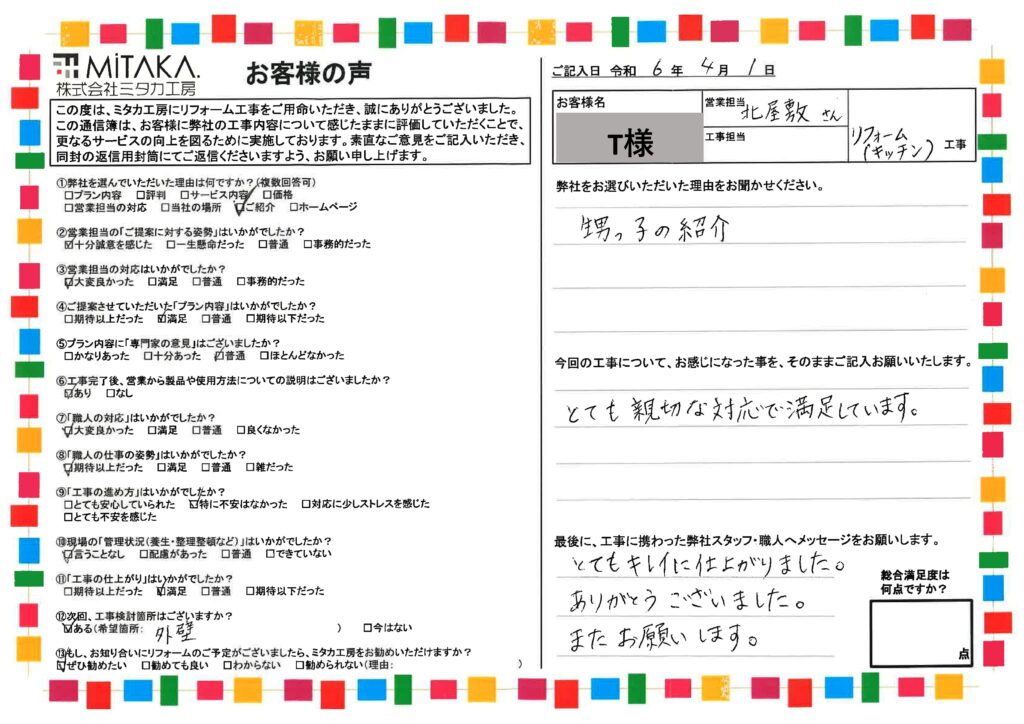 MiTAKA.
株式会社ミタカ工房
お客様の声
この度は、ミタカ工房にリフォーム工事をご用命いただき、誠にありがとうございました。
この通信簿は、お客様に弊社の工事内容について感じたままに評価していただくことで、
更なるサービスの向上を図るために実施しております。素直なご意見をご記入いただき、
同封の返信用封筒にてご返信くださいますよう、お願い申し上げます。
①弊社を選んでいただいた理由は何ですか?(複数回答可)
□プラン内容 □評判 □サービス内容 □価格
□営業担当の対応 □当社の場所 ☑ご紹介 □ホームページ
②営業担当の「ご提案に対する姿勢」はいかがでしたか?
☑十分誠意を感じた □一生懸命だった □普通 □事務的だった
③営業担当の対応はいかがでしたか?
☑大変良かった □満足 □普通 □事務的だった
④ご提案させていただいた「プラン内容」はいかがでしたか?
□期待以上だった ☑満足 □普通 □期待以下だった
⑤プラン内容に「専門家の意見」はございましたか?
□かなりあった □十分あった ☑普通 □ほとんどなかった
⑥工事完了後、営業から製品や使用方法についての説明はございましたか?
☑あり □なし
⑦「職人の対応」はいかがでしたか?
☑大変良かった □満足 □普通 □良くなかった
⑧「職人の仕事の姿勢」はいかがでしたか?
☑期待以上だった □満足 □普通 □雑だった
⑨「工事の進め方」はいかがでしたか?
□とても安心していられた ☑特に不安はなかった □対応に少しストレスを感じた
□とても不安を感じた
⑩現場の「管理状況(養生・整理整頓など)」はいかがでしたか?
☑言うことなし □配慮があった □普通 □できていない
⑪「工事の仕上がり」はいかがでしたか?
□期待以上だった ☑満足 □普通 □期待以下だった
⑫次回、工事検討箇所はございますか?
☑ある(希望箇所: 外壁 ) □今はない
⑬もし、お知り合いにリフォームのご予定がございましたら、ミタカ工房をお勧めいただけますか?
☑ぜひ勧めたい □勧めても良い □わからない □勧められない(理由: )
ご記入日 令和 6 年 4 月 1 日
お客様名
T様
営業担当 北屋敷 さん
工事担当
リフォーム
(キッチン) 工事
弊社をお選びいただいた理由をお聞かせください。
甥っ子の紹介
今回の工事について、お感じになった事を、そのままご記入お願いいたします。
とても親切な対応で満足しています。
最後に、工事に携わった弊社スタッフ・職人へメッセージをお願いします。
とてもキレイに仕上がりました。
ありがとうございました。
またお願いします。
総合満足度は
何点ですか?
点